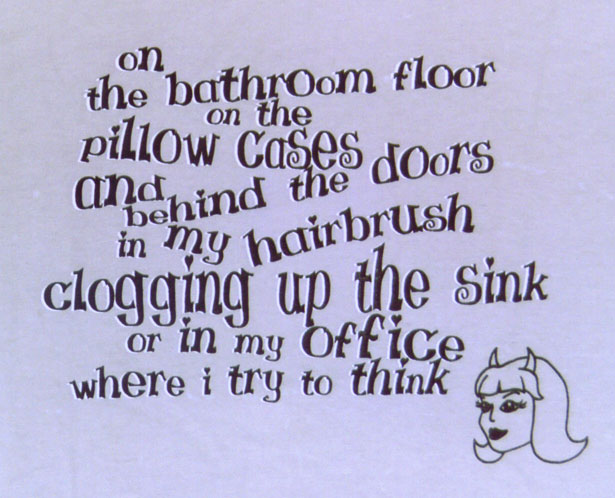 on
the bathroom floor
on the
pillow cases
and behind the doors
in my hairbrush
clogging up the sink
or in my office
where i try to think